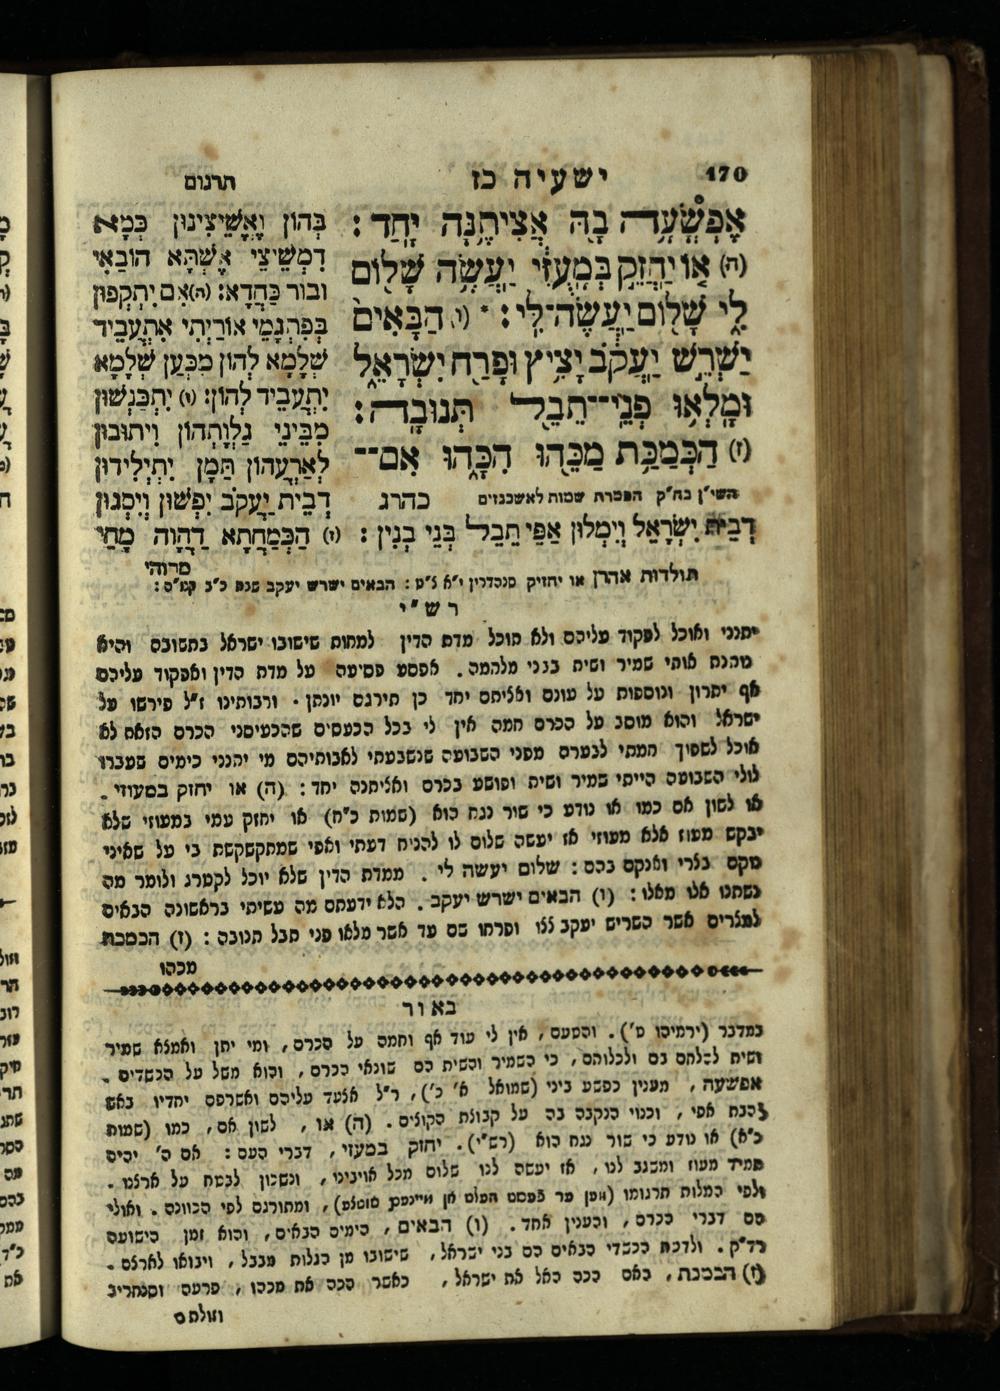 170
ישעיה כז
תרגום
אֶפְשְׂעָה בָהּ אֲצִיתֶנָּה יָּחַד:
(ה) אוֹ יַחֲזֵק בְּמָעֻזִּי יַעֲשֶׂה שָׁלוֹם
לִי שָׁלוֹם יַעֲשֶׂה־לִּי: * (ו) הַבָּאִים
יַשְׁרֵשׁ יַעֲקֹב יָצִיץ וּפָרַח יִשְׂרָאֵל
וּמָלְאוּ פְנֵי־תֵבֵל תְּנוּבָה:
(ז) הַכְּמַכַּת מַכֵּהוּ הִכָּהוּ אִם־
השי"ן בח"ק הפטרת שמות לאשכנזים כהרג
בְּהוֹן וֶאֱשֵׁיצִינוּן כְּמָא
דִמְשֵׁיצֵי אֶשְׁתָּא הוֹבָאֵי
ובור כַּחֲדָא: (ה) אִם יִתְקְפוּן
בְּפִתְגָּמֵי אוֹרַיְתִי אִתְעֲבֵיד
שְׁלָמָא לְהוֹן מִכְּעַן שְׁלָמָא
יִתְעֲבֵיד לְהוֹן: (ו) יִתְכַּנְשׁוּן
מִבֵּינֵי גַלְוָתְהוֹן וִיתוּבוּן
לְאַרְעֲהוֹן תַּמָּן יִתְיַלִידוּן
דְבֵית יַעֲקֹב יִפְשׁוּן וְיִסְגּוּן
דְבֵית יִשְׂרָאֵל וְיִמְלוּן אַפֵּי תֵבֵל בְּנֵי בְנִין: (ז) הַכְּמַחֲתָא דַהֲוָה מָחֵי
מרוהי
תולדות אהרן או יחזיק סנהדרין י"א צ"ט: הבאים ישרש יעקב שבת כ"ב קמ"ה:
רש"י
יתנני ואוכל לפקוד עליהם ולא תוכל מדת הדין למחות שישובו ישראל בתשובה והיא
נותנת אותי שמיר ושית בנני מלחמה. אפסע פסיעה על מדת הדין ואפקוד עליהם
אף יתרון ונוספות על עונם ואציתם יחד כן תירגם יונתן. ורבותינו ז"ל פירשו על
ישראל והוא מוסב על הכרם חמה אין לי בכל הכעסים שהכעיסני הכרם הזאת לא
אוכל לשפוך חמתי לבערם מפני השבועה שנשבעתי לאבותיהם מי יתנני כימים שעברו
לולי השבועה הייתי שמיר ושית ופושע בכרם ואציתנה יחד: (ה) או יחזק במעוזי.
או לשון אם כמו או נודע כי שור נגח הוא (שמות כ"א) או יחזק עמי במעוזי שלא
יבקש מעוז אלא מעוזי אז יעשה שלום לו להניח דעתי ואפי שמתקשקשת בי על שאיני
נוקם בצרי ואנקם בהם: שלום יעשה לי. ממדת הדין שלא יוכל לקטרג ולומר מה
נשתנו אלו מאלו: (ו) הבאים ישרש יעקב. הלא ידעתם מה עשיתי בראשונה הבאים
למצרים אשר השריש יעקב צצו ופרחו שם עד אשר מלאו פני תבל תנובה: (ז) הכמכת
מכהו
באור
במדבר (ירמיהו ט'). והטעם, אין לי עוד אף וחמה על הכרם, ומי יתן ואמצא שמיר
ושית להלחם בם ולכלותם, כי השמיר והשית הם שונאי הכרם, והוא משל על הכשדים.
אפשעה, מענין כפשע ביני (שמואל א' כ'), ר"ל אצעד עליהם ואשרפם יחדיו באש
להבת אפי, וכנוי הנקבה בה על קבוצת הקוצים. (ה) או, לשון אם, כמו (שמות
כ"א) או נודע כי שור נגח הוא (רש"י). יחזק במעזי, דברי העם: אם ה' יהיה
תמיד מעוז ומשגב לנו, אז יעשה לנו שלום מכל אויבינו, ונשכון לבטח על ארצנו.
ולפי המלות תרגומו, ומתורגם לפי הכוונה. ואולי
הם דברי הכרם, והענין אחד. (ו) הבאים, הימים הבאים, והוא זמן הישועה
רד"ק. ולדעת הכשדי הבאים הם בני ישראל, שישובו מן הגלות מבבל, ויבואו לארצם.
(ז) הכמכת, האם הכה האל את ישראל, כאשר הכה את מכהו, פרעה וסנחריב
וזולתם